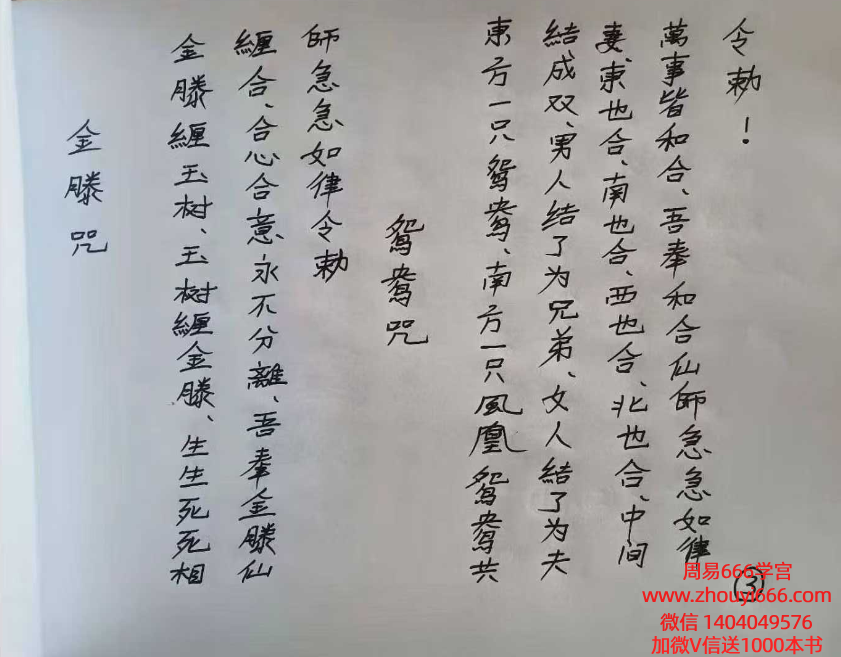 金滕咒
金滕緾玉树、玉树緾金滕、生生死死相
緾合、合心合意永不分離、吾奉金滕仙
師急急如律令勅
鸳鸯咒
東方一只鸳鸯、南方一只凤凰鸳鸯共
結成双、男人結了为兄弟、女人結了为夫
妻、東也合、南也合、西也合、北也合、中间
萬事皆和合、吾奉和合仙師急急如律
令勅！
③
周易666学宫
www.zhouyi666.com
微信 1404049576
加微V信送1000本书